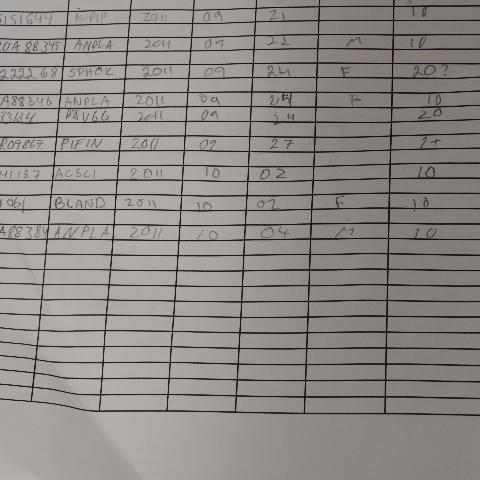 5151644 EUPIP 2011 09 21 10
0A88345 ANPLA 2011 09 22 M 10
222268 SPHOK 2011 09 24 F 20?
A88346 ANPLA 2011 09 24 F 10
73134 PAVGG 2011 09 24 20
P09867 PIFIN 2011 09 27 1+
41137 ACSCI 2011 10 02 10
1061 BLAND 2011 10 02 F 10
A88384 ANPLA 2011 10 04 M 10